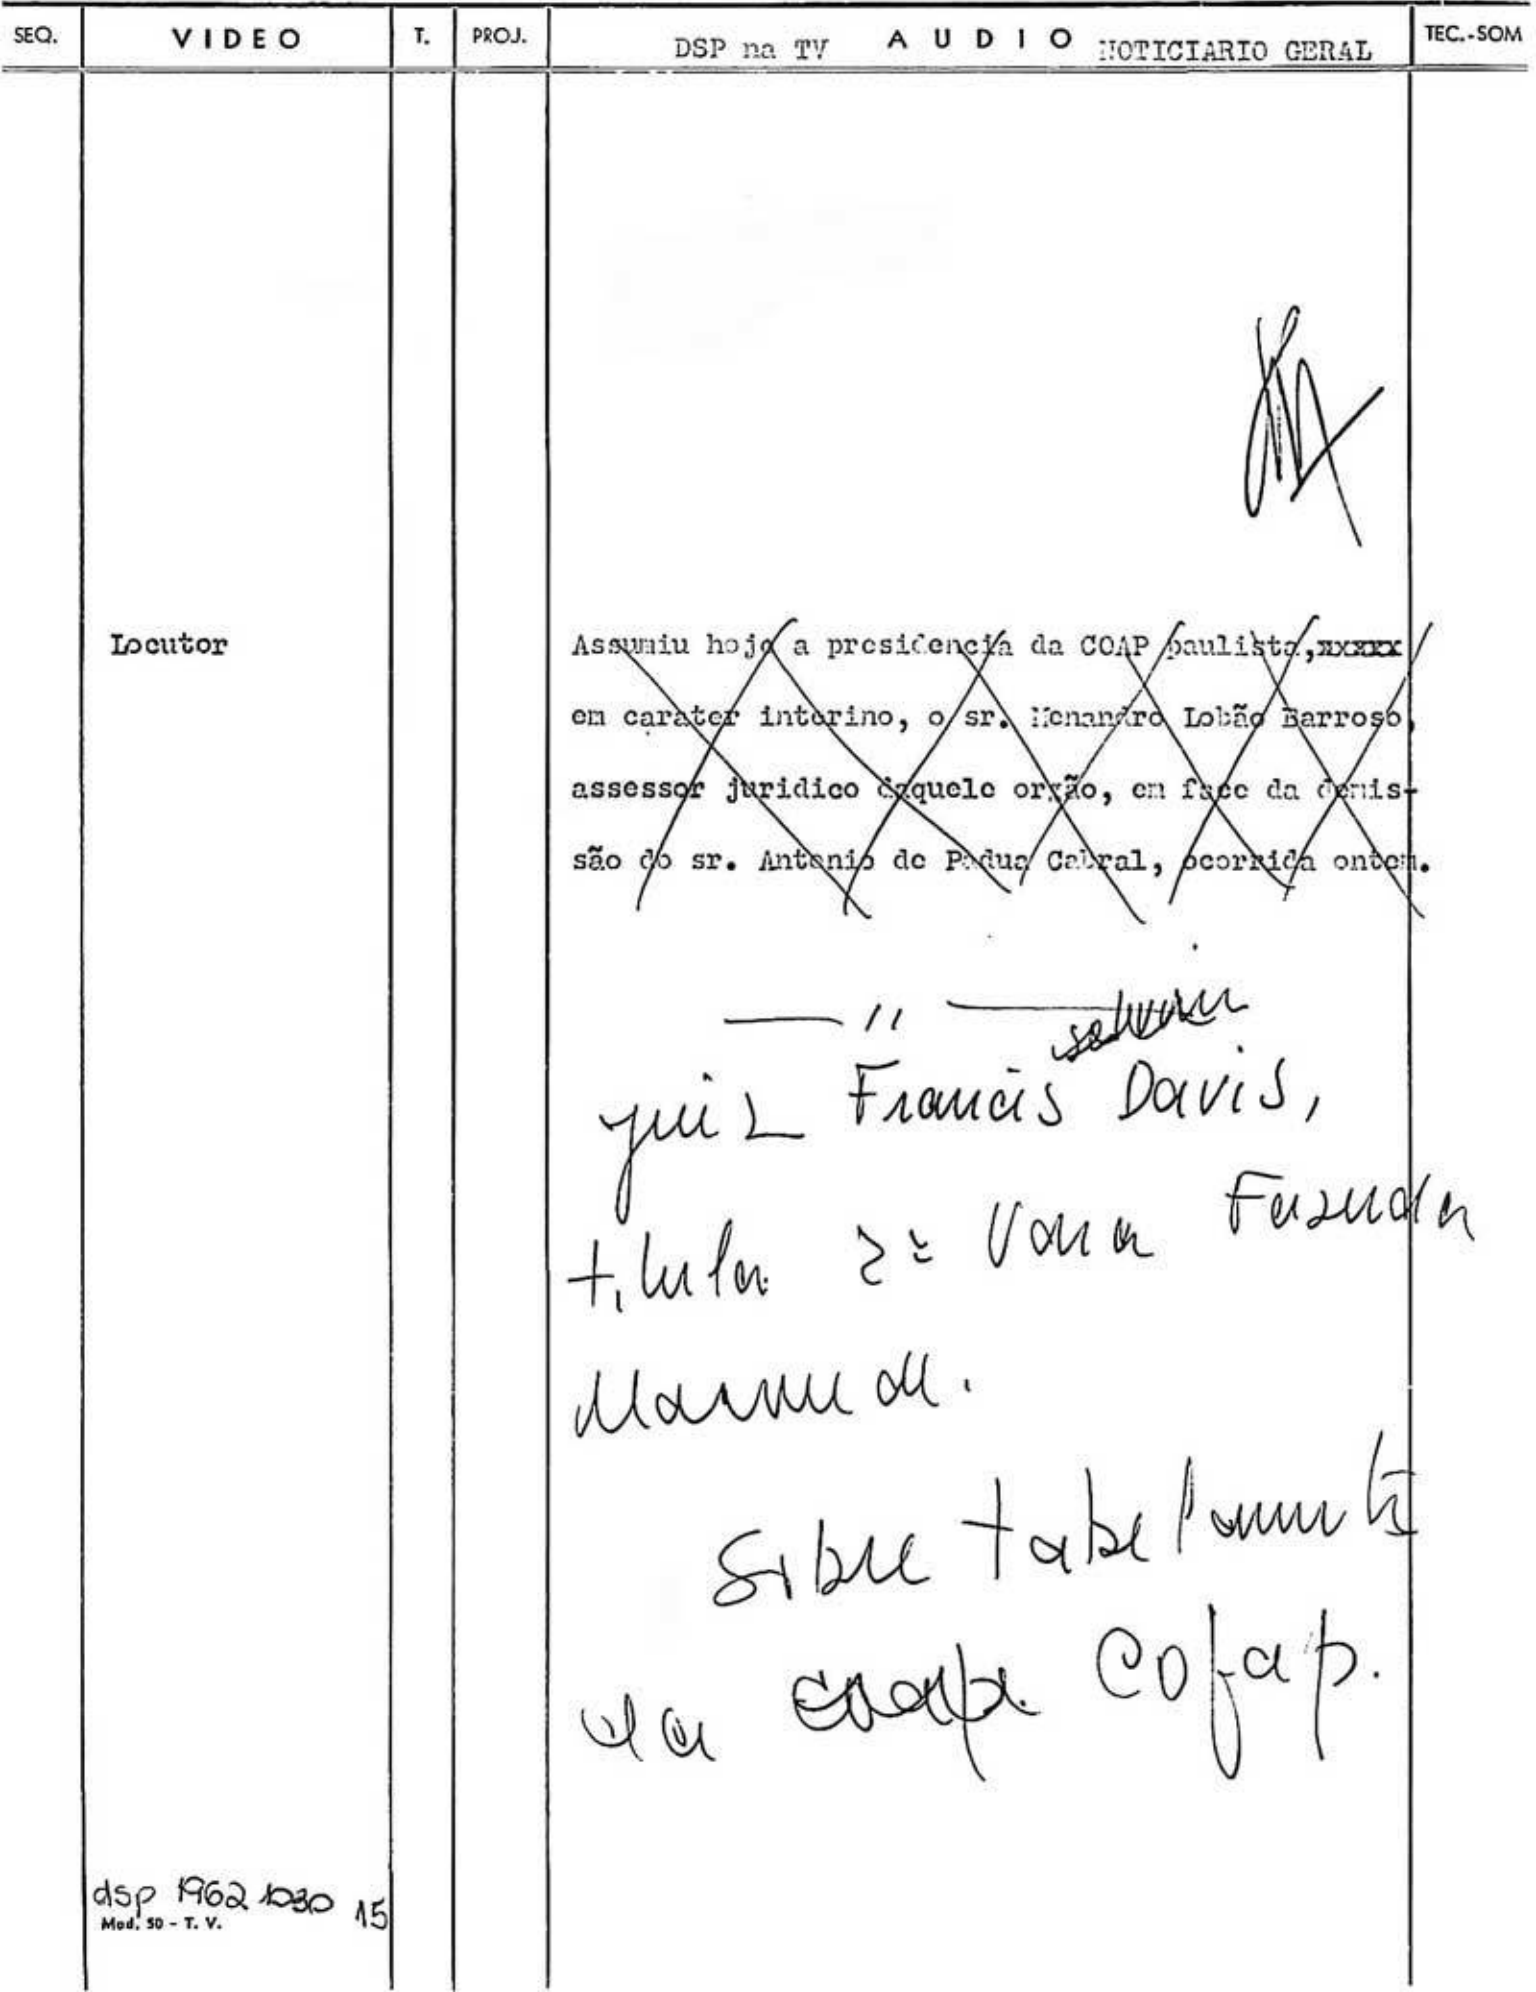 SEQ. VIDEO T. PROJ. DSP na TV AUDIO NOTICIARIO GERAL TEC.-SOM
Locutor
Assumiu hoje a presidencia da COAP paulista, xxxxx
em carater interino, o sr. Menandro Lobão Barroso,
assessor juridico daquele orgão, em face da demis-
são do sr. Antonio de Padua Cabral, ocorrida ontem.
— " —
juiz Francis Davis,
titular 2ª Vara Fazenda
Sôbre tabelamento
da Coap Cofap.
dsp 1962 1030 15
Mod. 50 - T. V.